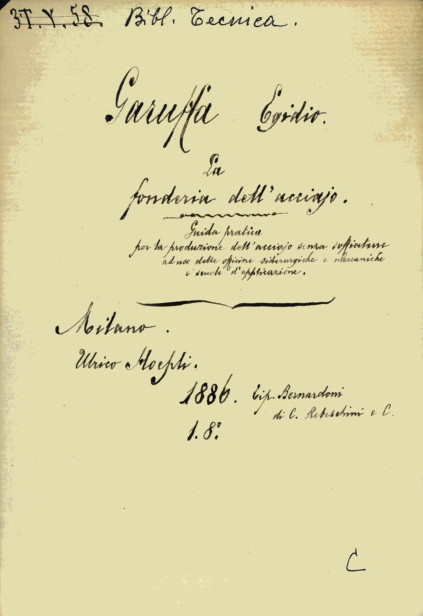 37.V.58. Bibl. Tecnica.
Garuffa Egidio.
La
fonderia dell'acciajo.
Guida pratica
per la produzione dell'acciajo senza soffiature
ad uso delle officine siderurgiche e meccaniche
e scuole d'applicazione.
Milano.
Ulrico Hoepli.
1886. Tip. Bernardoni
di C. Rebeschini e C.
1.8°
C